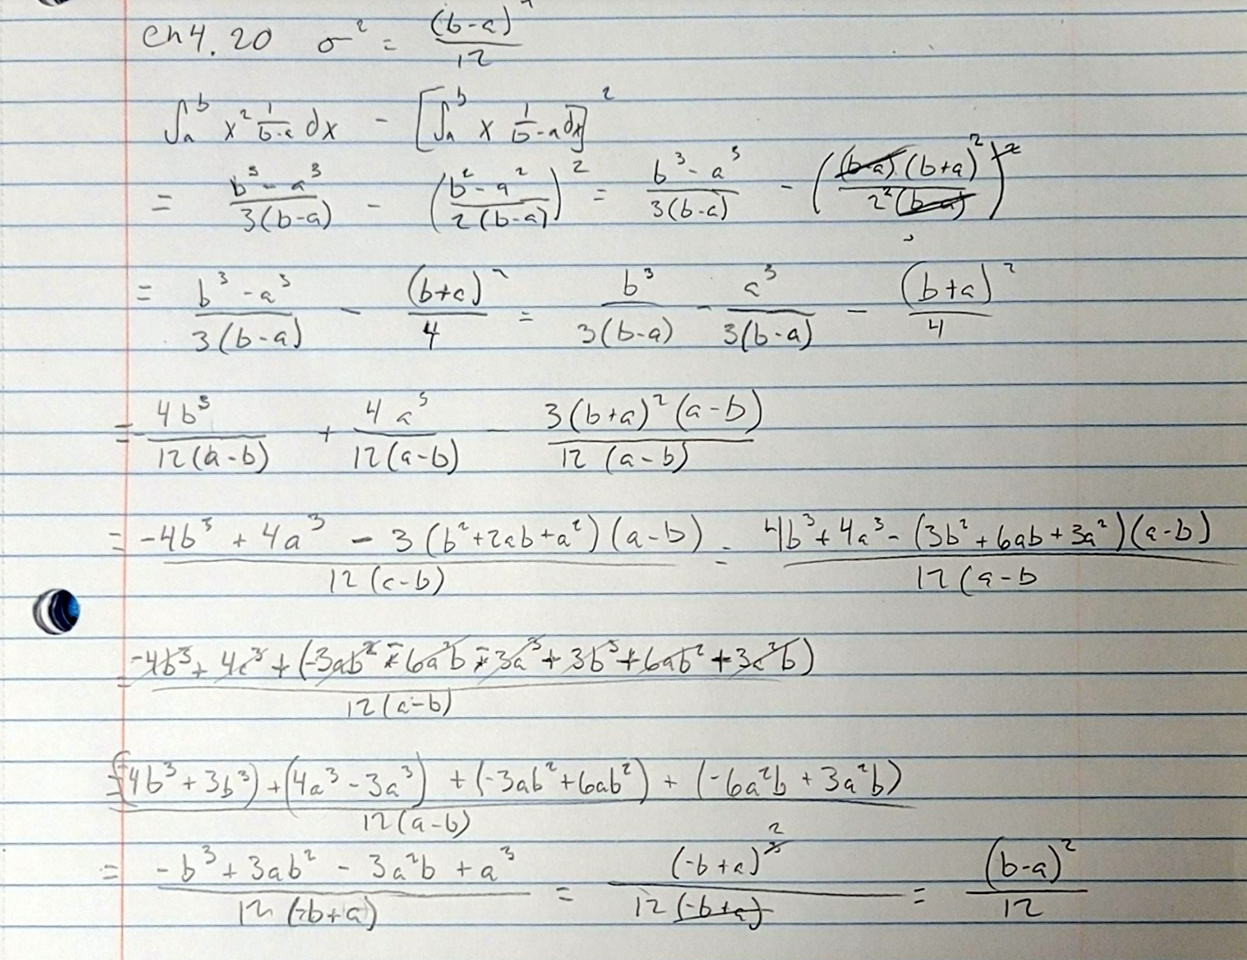 Ch 4. 20 σ² = (b-a)² / 12
∫ₐᵇ x² 1/(b-a) dx - [∫ₐᵇ x 1/(b-a) dx]²
= (b³ - a³) / 3(b-a) - ((b² - a²) / 2(b-a))² = (b³ - a³) / 3(b-a) - ((b-a)(b+a)² / 2²(b-a))²
= (b³ - a³) / 3(b-a) - (b+a)² / 4 = b³ / 3(b-a) - a³ / 3(b-a) - (b+a)² / 4
= -4b³ / 12(a-b) + 4a³ / 12(a-b) - 3(b+a)²(a-b) / 12(a-b)
= (-4b³ + 4a³ - 3(b²+2ab+a²)(a-b)) / 12(a-b) = (4b³ + 4a³ - (3b² + 6ab + 3a²)(a-b)) / 12(a-b
= (-4b³ + 4a³ + (-3ab² - 6a²b - 3a³ + 3b³ + 6ab² + 3a²b)) / 12(a-b)
= ((-4b³ + 3b³) + (4a³ - 3a³) + (-3ab² + 6ab²) + (-6a²b + 3a²b)) / 12(a-b)
= (-b³ + 3ab² - 3a²b + a³) / 12(-b+a) = (-b+a)² / 12(-b+a) = (b-a)² / 12